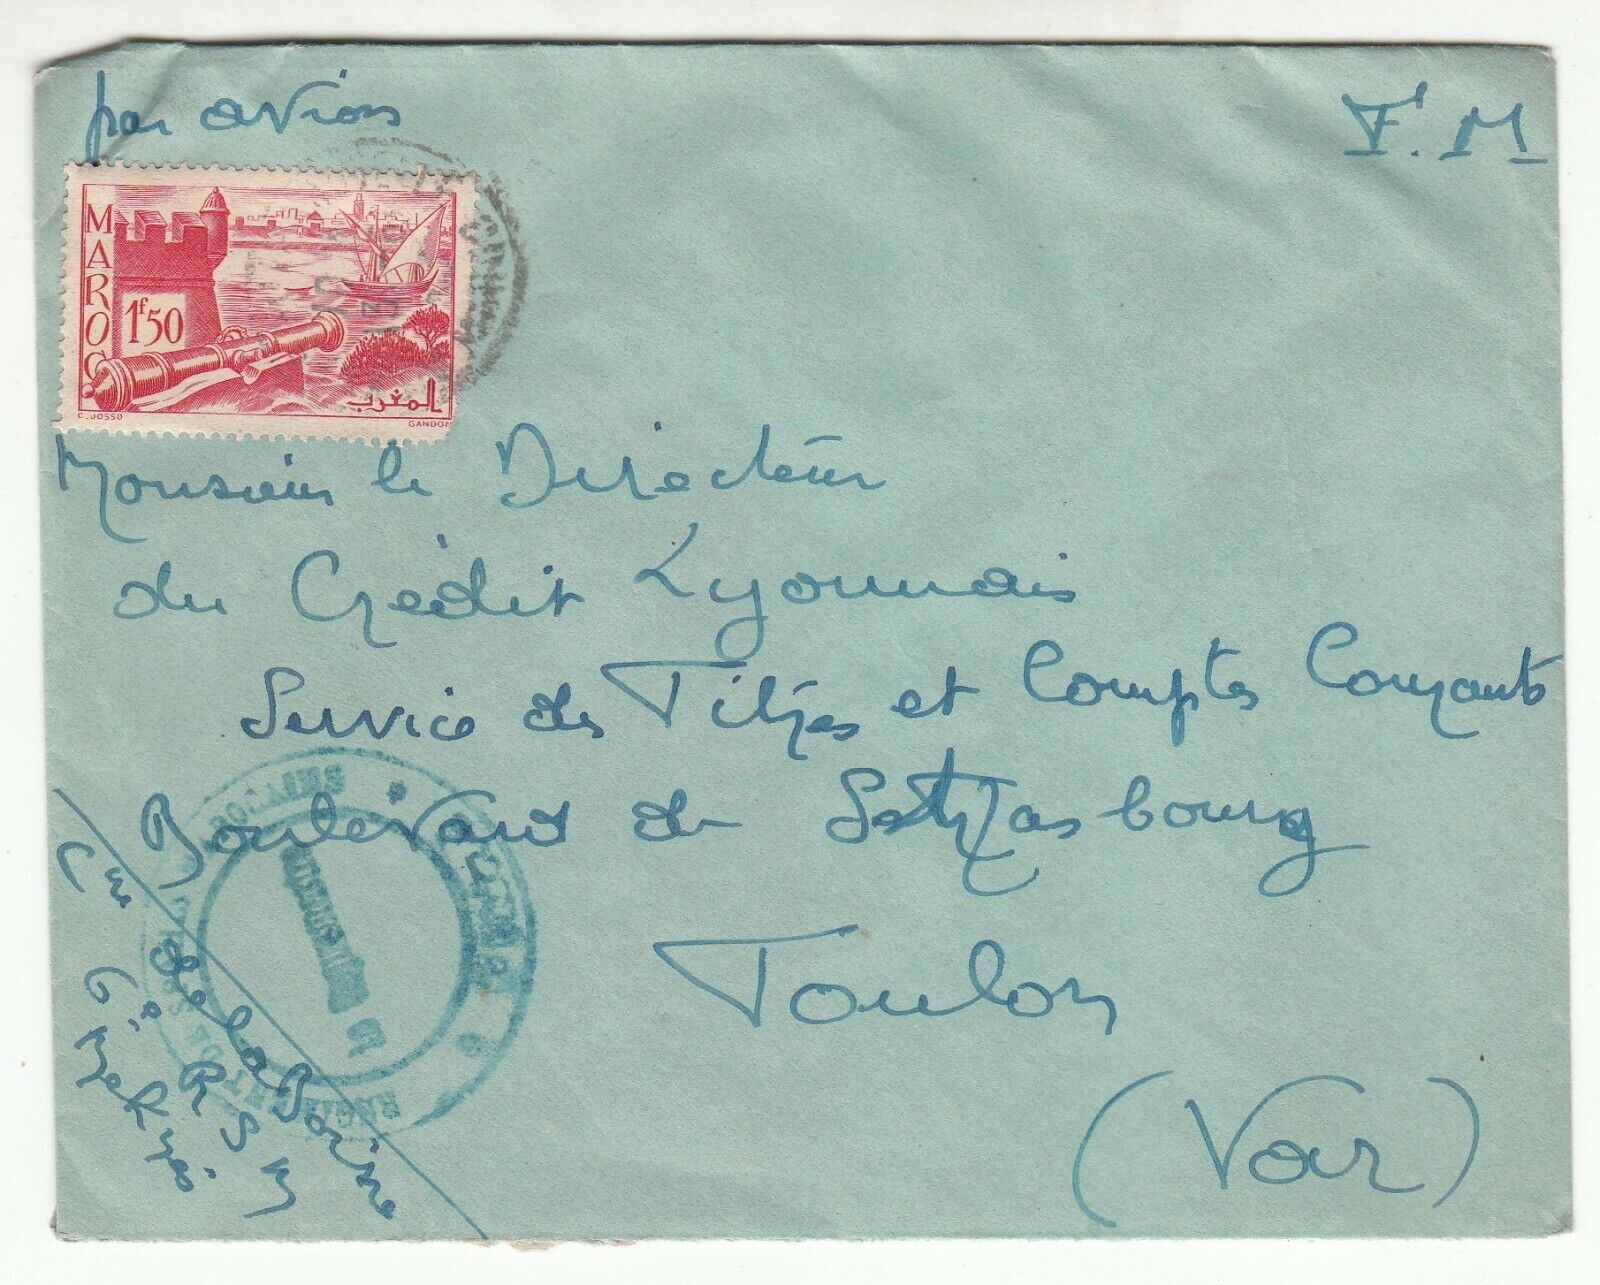 par avion
F. M
MAROC
1F50
المغرب
C. JOSSO
GANDON
Monsieur le Directeur
du Crédit Lyonnais
Service des Titres et Comptes Courants
Boulevard de Strasbourg
Toulon
(Var)
de la Borie
6e R S M